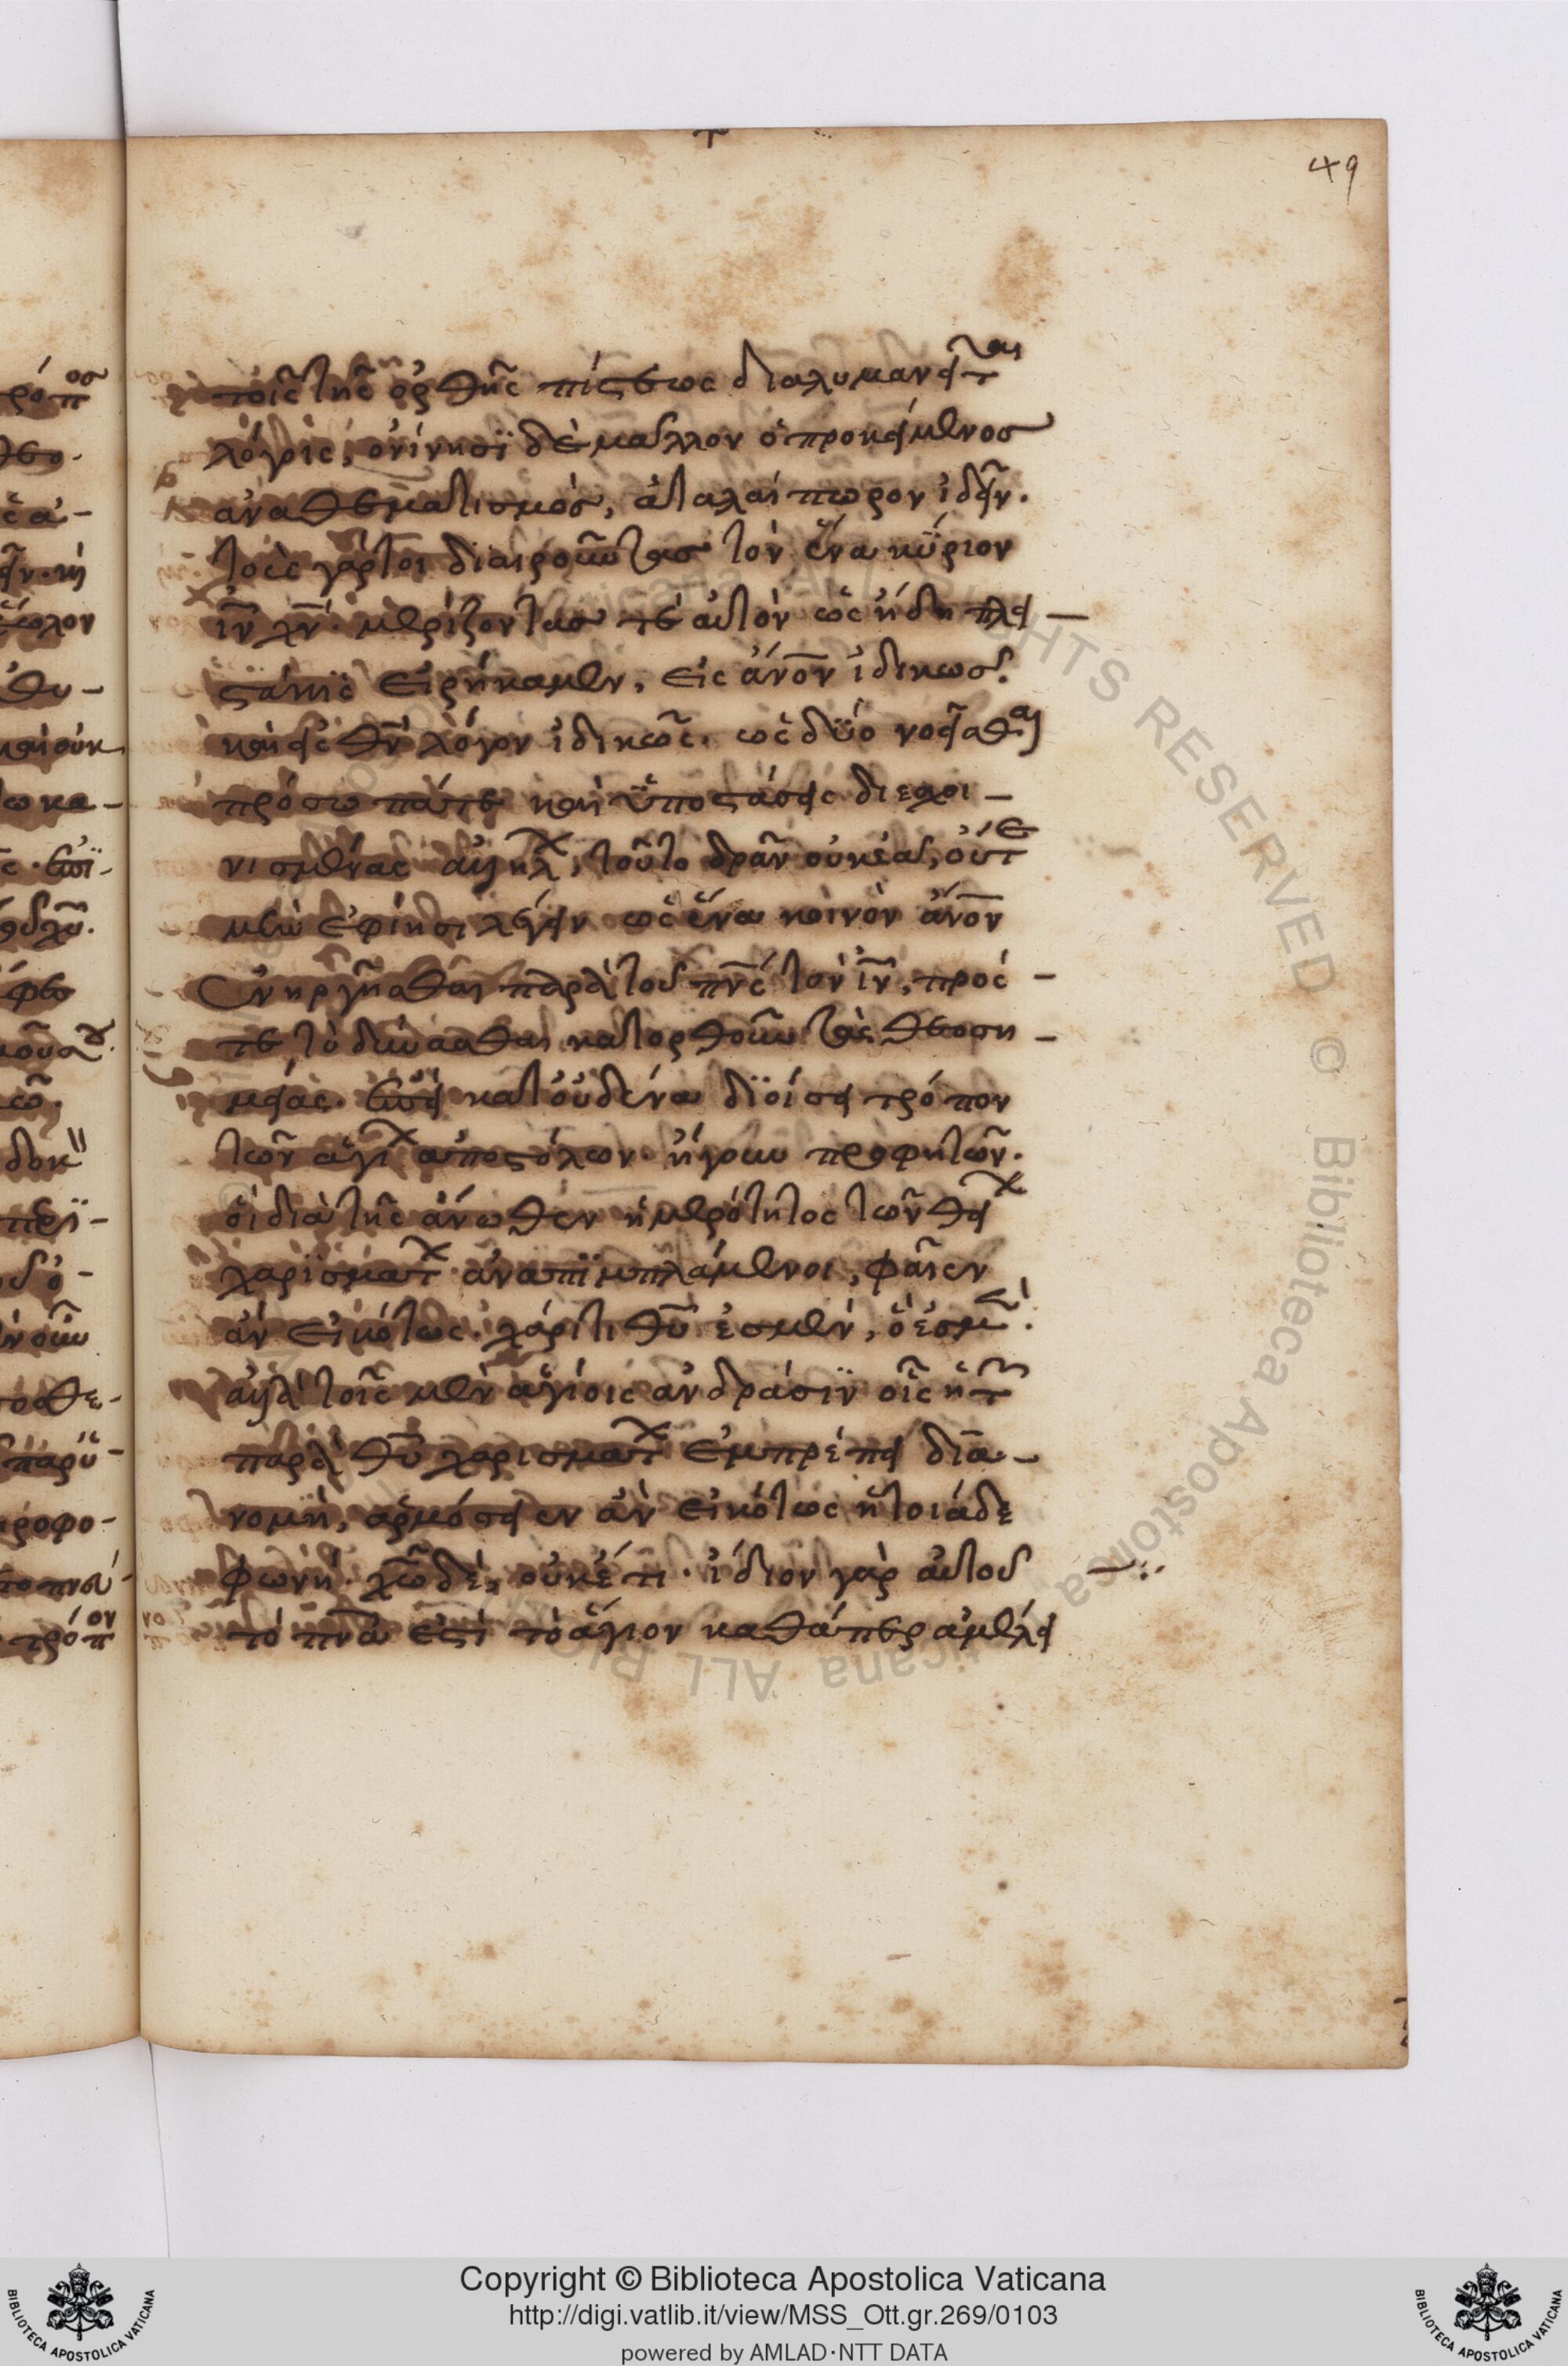 49
τοῖς τῆς ὀρθῆς πίστεως διαλυμανεῖται
λόγοις, ὀνίνησϊ δὲ μᾶλλον ὁ προκείμενος
ἀναθεματισμός, ἀταλαίπωρον ἰδεῖν.
τοὺς γάρτοι διαιροῦντας τὸν ἕνα κύριον
ἰν χν. μερίζοντάς τε αὐτὸν ὡς ἤδη πλει-
στάκις εἰρήκαμεν, εἰς ἄνον ἰδικῶς.
καὶ εἰς θν λόγον ἰδικῶς. ὡς δύο νοεῖσθαι
πρόσωπά τε καὶ ὑποστάσεις διεσχοι-
νισμένας ἀλλήλ, τοῦτο δρᾶν οὐκ ἐᾷ, οὔτε
μὴν ἐφίησι λέγειν ὡς ἕνα κοινὸν ἄνον
ἐνηργῆσθαι παρὰ τοῦ πνς τὸν ἰν, πρός -
τε τὸ δύνασθαι κατορθοῦν τὰς θεοση-
μείας. ἐπεὶ κατ οὐδένα διοίσει τρόπον
τῶν ἁγί ἀποστόλων. ἤγουν προφητῶν.
οἳ διὰ τῆς ἄνωθεν ἡμερότητος τῶν θεί
χαρισμάτ ἀναπιμπλάμενοι, φαῖεν
ἂν εἰκότως. χάριτι θυ ἐσμέν, ὅ ἐσμ.
ἀλλὰ τοῖς μὲν ἁγίοις ἀνδράσιν οἷς ἡ τ
παρὰ θυ χαρισμάτ ἐμπρέπει δια-
νομή, ἁρμόσειεν ἂν εἰκότως ἡ τοιάδε
φωνή. χω δὲ, οὐκέτι. ἴδιον γὰρ αὐτοῦ
τὸ πνα ἐστὶ τὸ ἅγιον καθάπερ ἀμέλει
Copyright © Biblioteca Apostolica Vaticana
http://digi.vatlib.it/view/MSS_Ott.gr.269/0103
powered by AMLAD·NTT DATA
BIBLIOTECA APOSTOLICA VATICANA
BIBLIOTECA APOSTOLICA VATICANA